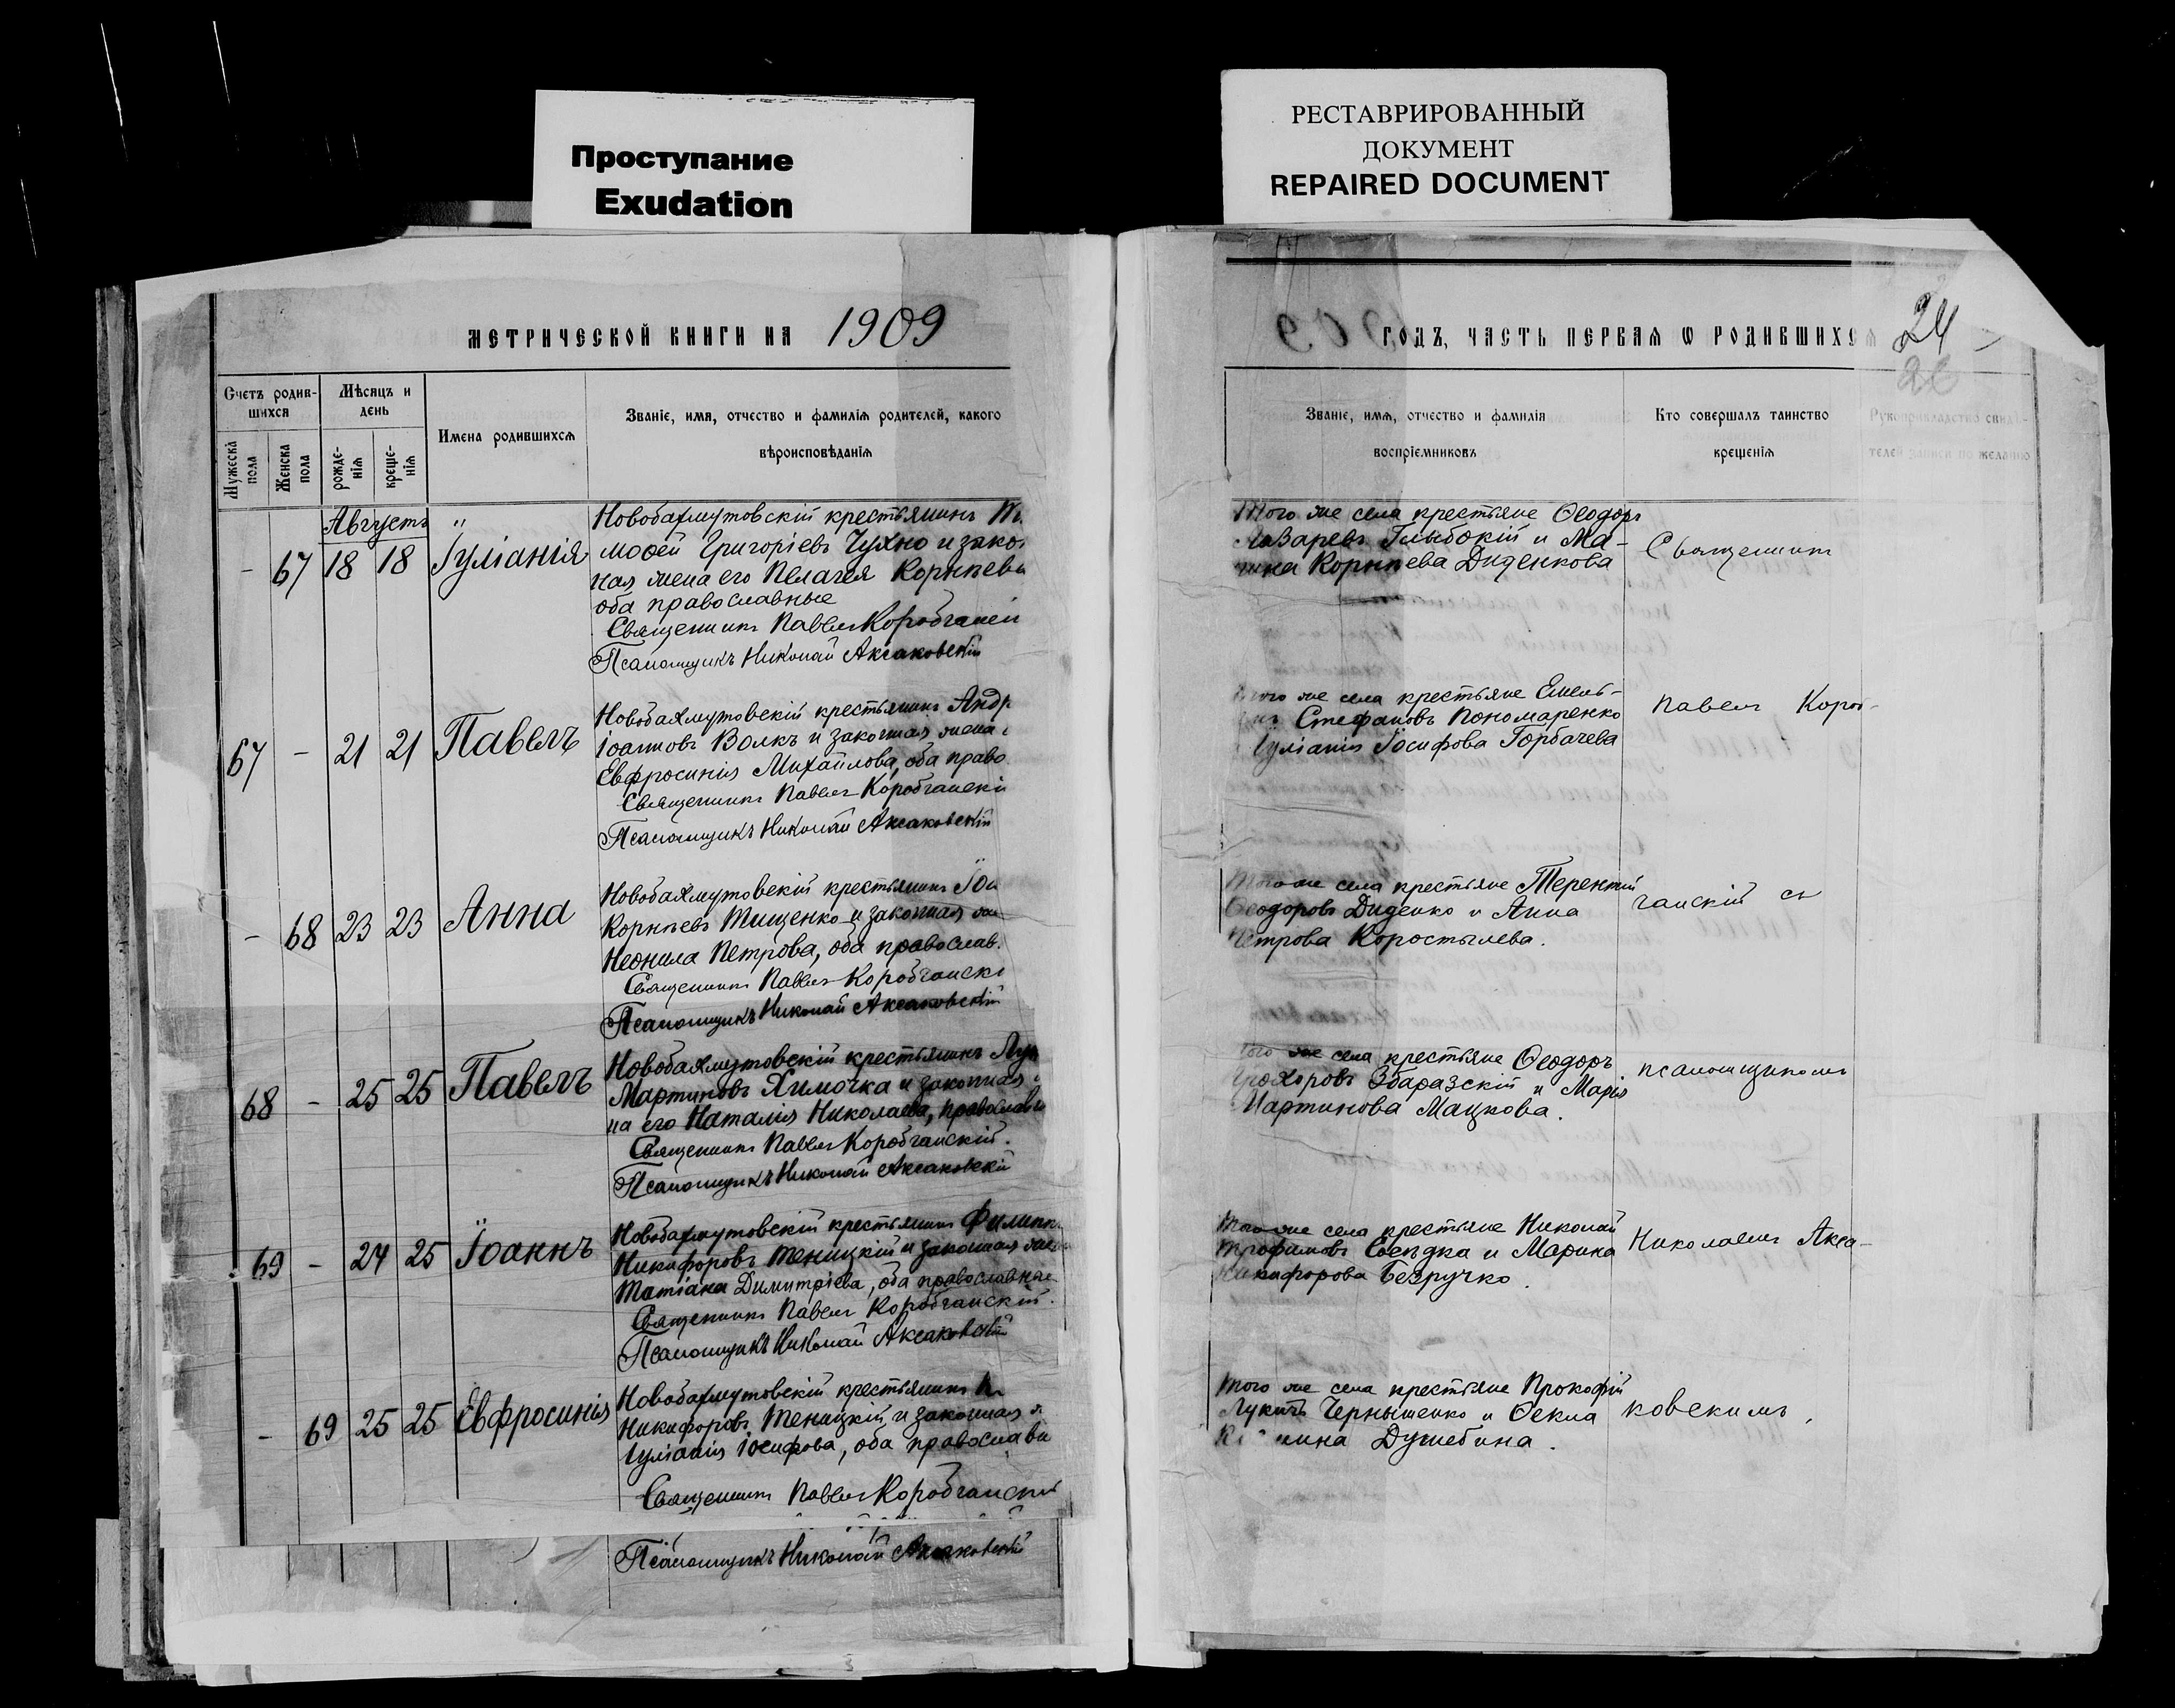 Проступание
Exudation
РЕСТАВРИРОВАННЫЙ
ДОКУМЕНТ
REPAIRED DOCUMENT
МЕТРИЧЕСКОЙ КНИГИ НА 1909
Счетъ родив-
шихся
Мѣсяцъ и
день
Имена родившихся
Званіе, имя, отчество и фамилія родителей, какого
вѣроисповѣданія
Мужеска
пола
Женска
пола
рожде-
нія
креще-
нія
Августъ "
- 67 18 18 Іуліанія
Новобахмутовскій крестьянинъ Ти
моѳей Григоріевъ Чухно и зако
ная жена его Пелагея Корнѣева
оба православные
Священникъ Павелъ Коробчанскій
Псаломщикъ Николай Аксаковскій
67 - 21 21 Павелъ
Новобахмутовскій крестьянинъ Андр
Іоанновъ Волкъ и законная жена
Евфросинія Михайлова, оба право
Священникъ Павелъ Коробчанскі
Псаломщикъ Николай Аксаковскій
- 68 23 23 Анна
Новобахмутовскій крестьянинъ Іоа
Корнѣевъ Тищенко и законная же
Неонила Петрова, оба православ.
Священникъ Павелъ Коробчанск
Псаломщикъ Николай Аксаковскій
68 - 25 25 Павелъ
Новобахмутовскій крестьянинъ Лук
Мартиновъ Химочка и законная
на его Наталія Николаева, православн
Священникъ Павелъ Коробчанскій.
Псаломщикъ Николай Аксаковскій
69 - 24 25 Іоаннъ
Новобахмутовскій крестьянинъ Филипп
Никифоровъ Теницкій и законная жен
Татіана Димитріева, оба православные
Священникъ Павелъ Коробчанскій.
Псаломщикъ Николай Аксаковскій
- 69 25 25 Евфросинія
Новобахмутовскій крестьянинъ
Никифоровъ Теницкій и законная ж
Іуліанія Іосифова, оба православн
Священникъ Павелъ Коробчанскій
Псаломщикъ Николай Аксаковскій
ГОДЪ, ЧАСТЬ ПЕРВАЯ Ѡ РОДИВШИХСЯ 24
26
Званіе, имя, отчество и фамилія
воспріемниковъ
Кто совершалъ таинство
крещенія
Рукоприкладство свидѣ-
телей записи по желанію
Того же села крестьяне Ѳеодоръ
Лазаревъ Глыбокій и Ма-
рина Корнѣева Диденкова
Священникъ
Того же села крестьяне Емель-
янъ Стефановъ Пономаренко
и Іуліанія Іосифова Горбачева
Павелъ Короб-
Того же села крестьяне Терентій
Ѳеодоровъ Диденко и Анна
Петрова Коростылева.
чанскій съ
Того же села крестьяне Ѳеодоръ
Прохоровъ Збаразскій и Марія
Мартинова Мацкова.
псаломщикомъ
Того же села крестьяне Николай
Трофимовъ Сосѣдка и Марина
Никифорова Безручко.
Николаемъ Акса-
Того же села крестьяне Прокофій
Лукичъ Чернышенко и Ѳекла
Душебина.
ковскимъ.